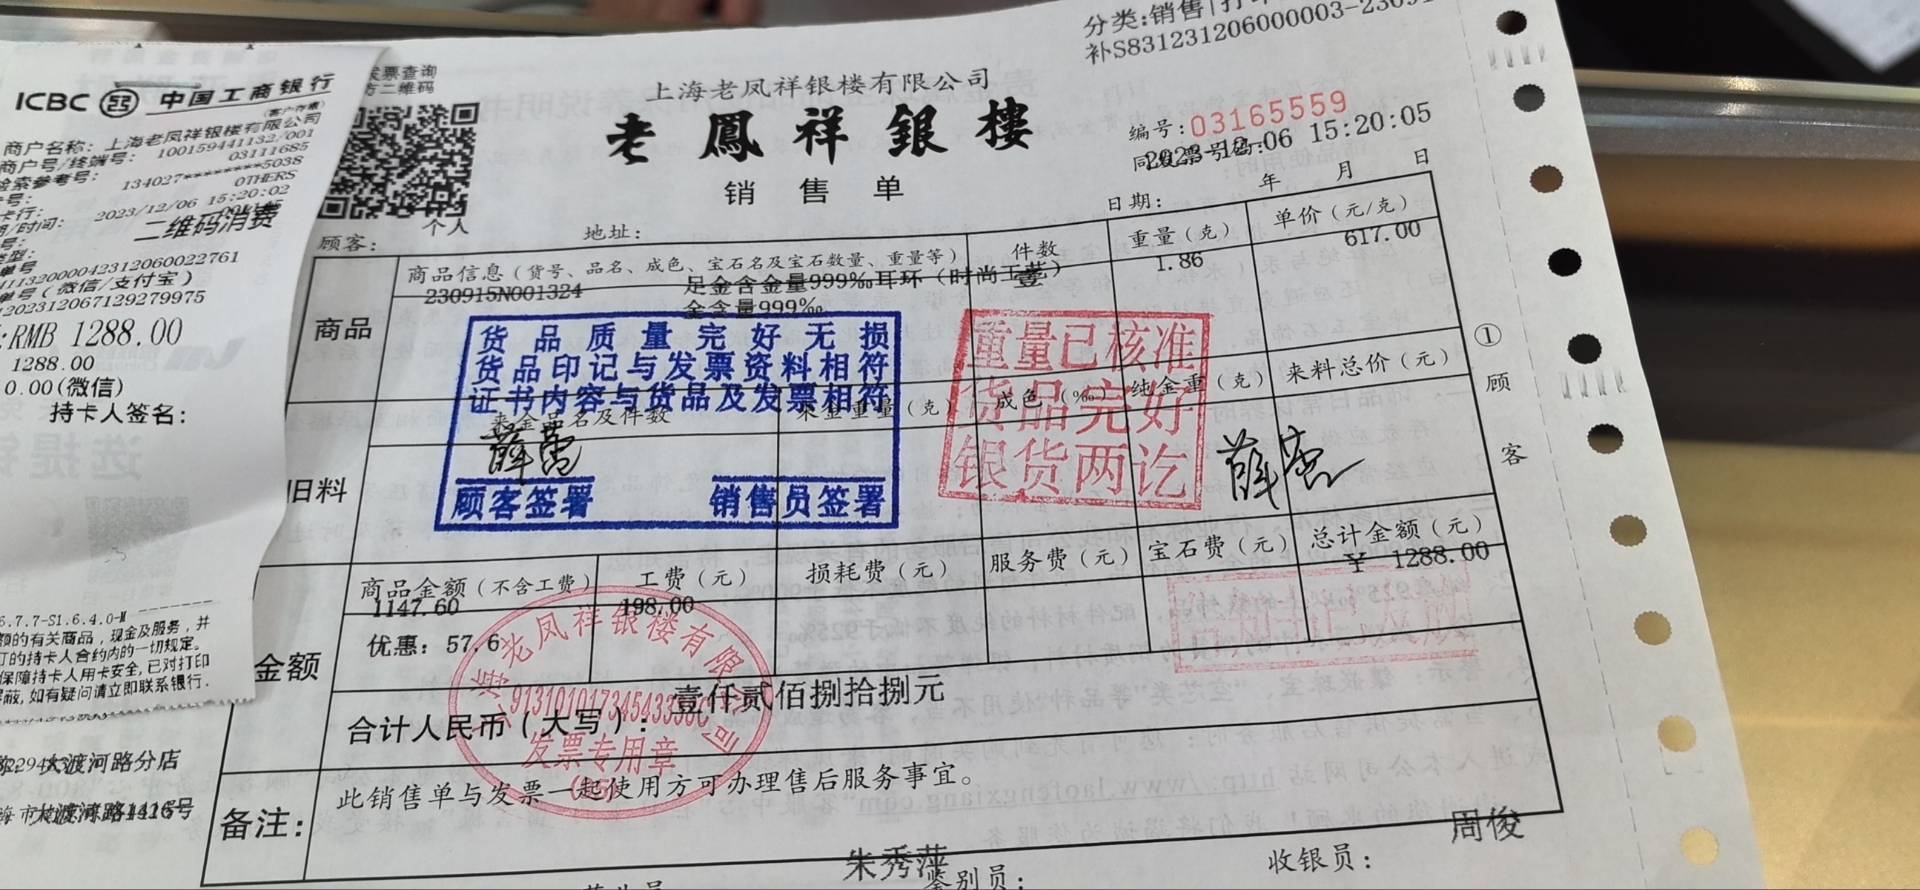 ICBC 中国工商银行
(客户存根)
商户名称: 上海老凤祥银楼有限公司
商户号/终端号: 100159441132/001
03111685
检索参考号: 134027*******5038
OTHERS
2023/12/06 15:20:02
二维码消费
411320000423120060022761
单号(微信/支付宝)
RMB 1288.00
1288.00
0.00(微信)
持卡人签名:
6.7.7-S1.6.4.0-M
额的有关商品,现金及服务,并
订的持卡人合约内的一切规定。
保障持卡人用卡安全,已对打印
屏蔽,如有疑问请立即联系银行.
大渡河路分店
大渡河路1416号
发票查询
方二维码
个人
分类:销售|打印
补S831231206000003-23091
上海老凤祥银楼有限公司
老鳳祥銀樓
销售单
编号:03165559
2023-12-06 15:20:05
日期: 年 月 日
顾客:
地址:
商品
商品信息(货号、品名、成色、宝石名及宝石数量、重量等)
件数
重量(克)
单价(元/克)
230915N001324
足金含金量999‰耳环(时尚工艺)
壹
1.86
617.00
金含量999‰
货品质量完好无损
货品印记与发票资料相符
证书内容与货品及发票相符
顾客签署 销售员签署
重量已核准
货品完好
银货两讫
旧料
来金品名及件数
来金重量(克)
成色(‰)
纯金重(克)
来料总价(元)
① 顾客
金额
商品金额(不含工费)
工费(元)
损耗费(元)
服务费(元)
宝石费(元)
总计金额(元)
1147.60
198.00
¥ 1288.00
优惠: 57.6
合计人民币(大写): 壹仟贰佰捌拾捌元
老凤祥银楼有限公司
发票专用章
备注:
此销售单与发票一起使用方可办理售后服务事宜。
朱秀萍
鉴别员:
收银员:
周俊